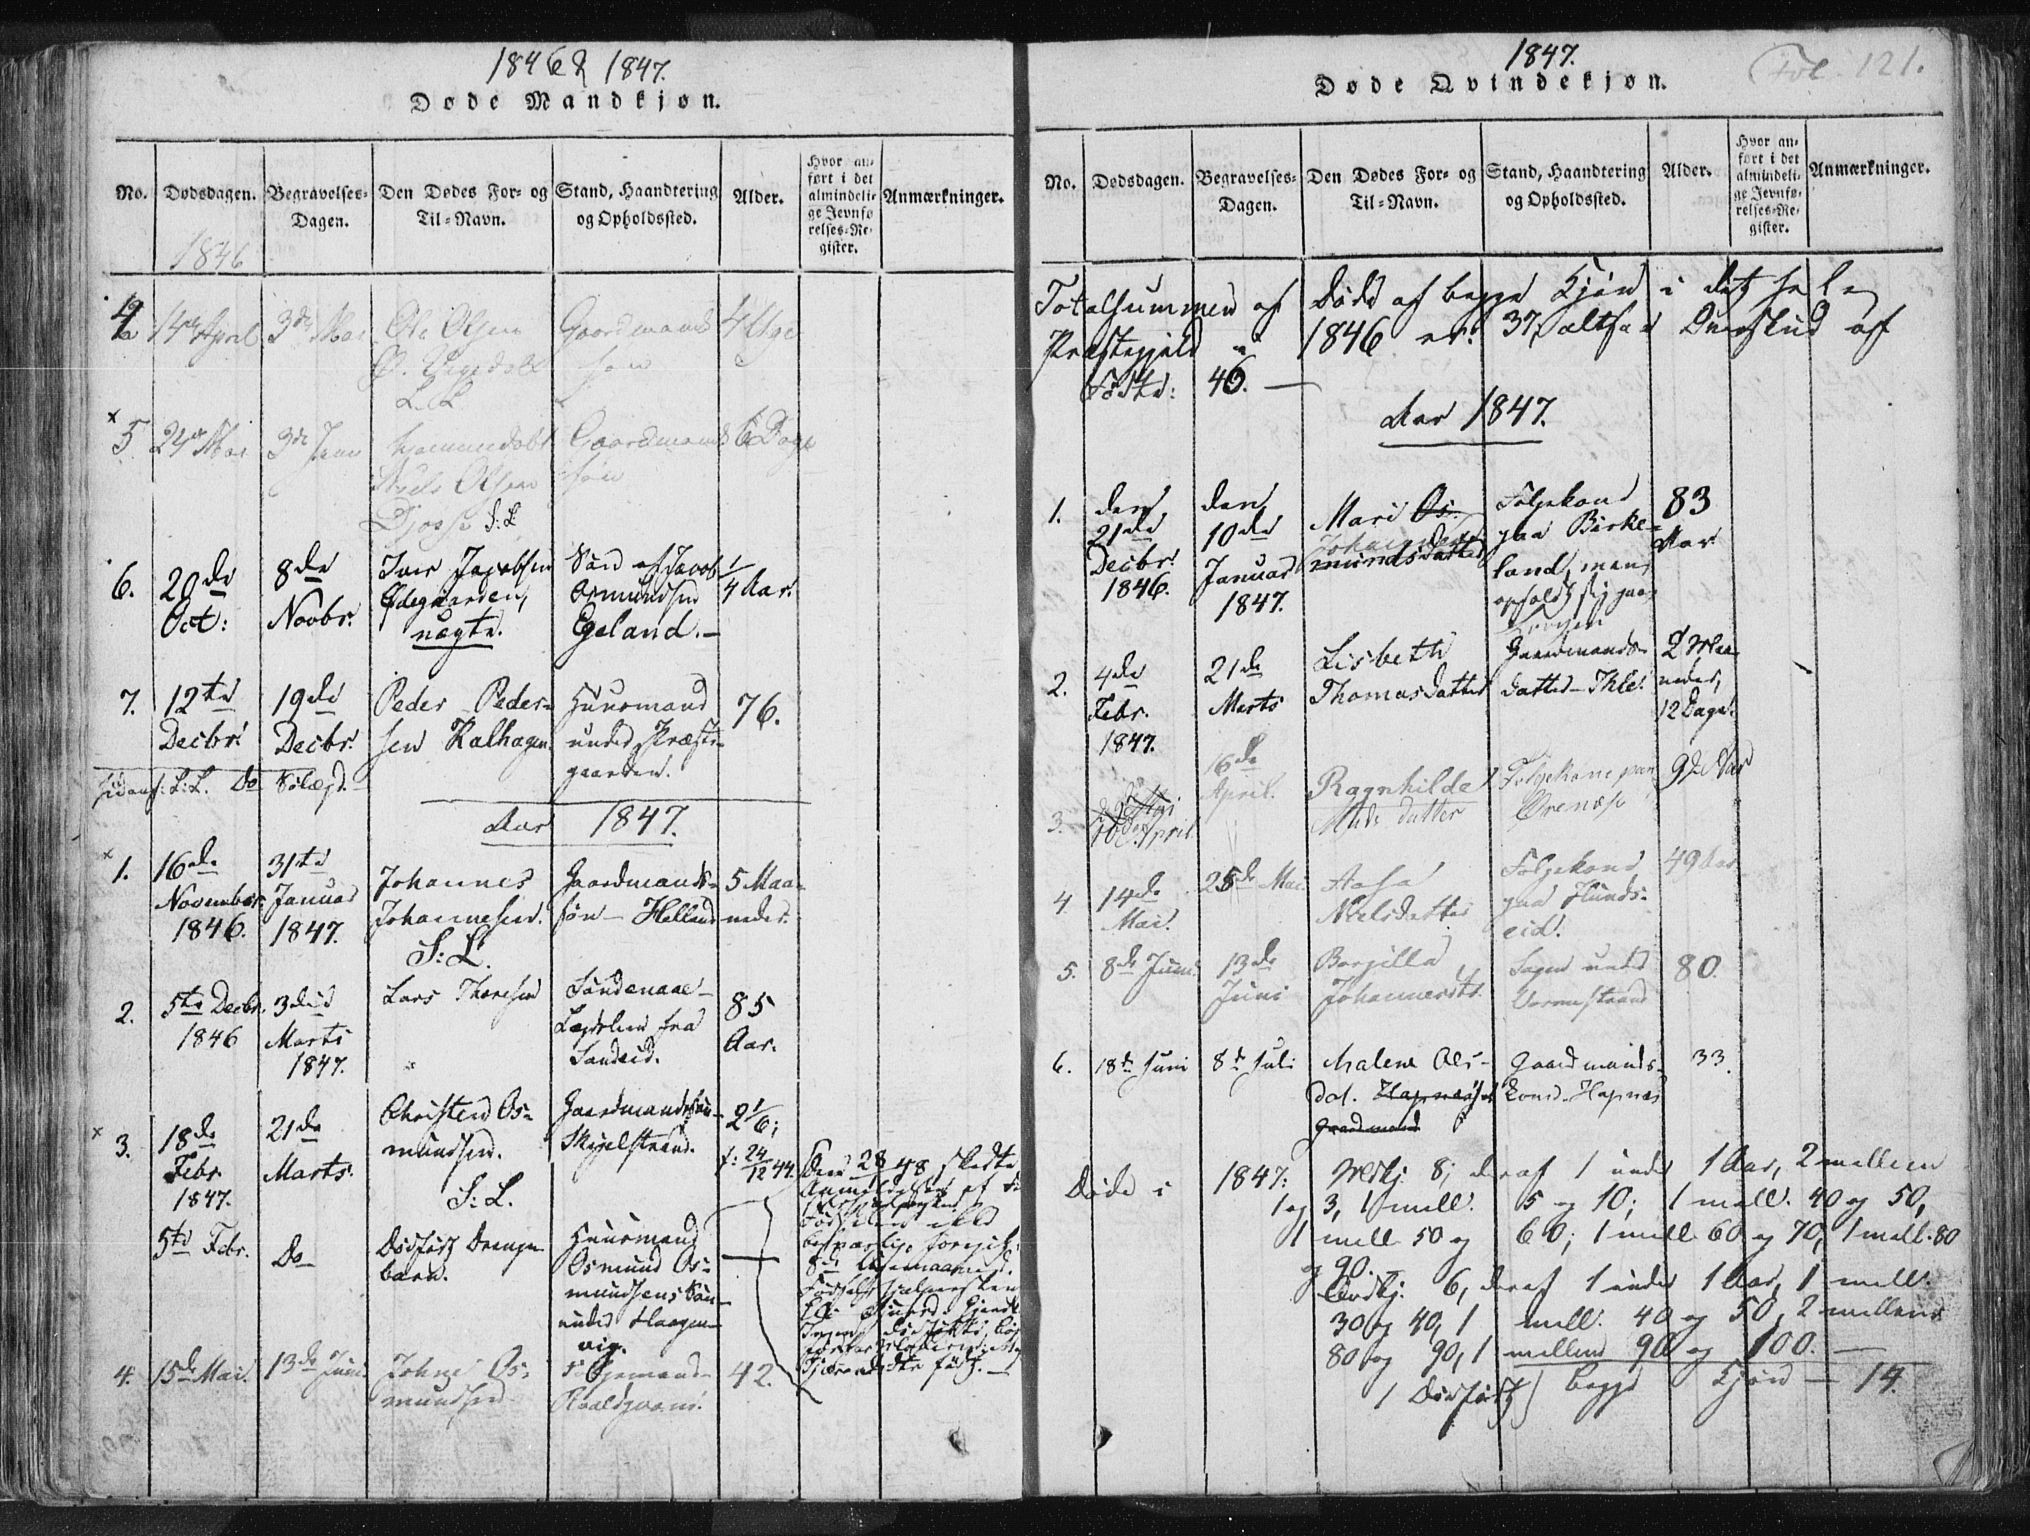 1846 & 1847.
Døde Mandkjøn.
No.
Dødsdagen.
Begravelses-
Dagen.
Den Dødes For- og
Til-Navn.
Stand, Haandtering
og Opholdssted.
Alder.
Hvor an-
ført i det
almindeli-
ge Jevnfø
relses-Re-
gister.
Anmærkninger.
1846
4
14de April
3de Mai
Ole Olsen
Gaardmands
4 Uge
søn
5
24de Mai
3de Juni
Hjemmedøbt
Gaardmands
6 Dage
Niels Olsen
søn
S:L
6.
20de
Oct:
8de
Novbr.
Iver Jacobsen
Ødegaarden,
nægte.
Søn af Jacob
Osmundsen
Egeland.
1/4 Aar.
7.
12te
Decbr.
19de
Decbr.
Peder Peder-
sen Kalhagen
Huusmand
under Præste-
gaarden.
76.
Aar 1847.
1.
16de
November
1846.
31te
Januar
1847.
Johannes
Johannesen.
S:L.
Gaardmands-
søn - Helland
5 Maa-
neder.
2.
5te Decbr.
1846
3die
Marts
1847.
Lars Thoresen
Lægdslem fra
Sandeid.
85
Aar.
3.
18de
Febr.
1847.
21de
Marts.
Christen Os-
mundsen.
S:L.
Gaardmandssøn
2 1/6;
f: 24/12 44.
5te Febr.
Do
Dødfødt Drenge-
barn.
Huusmand
Osmund Os-
mundsens Søn
under Haagen-
vig.
4.
15de Mai.
13de Juni.
Johne Os-
mundsen
42.
1847.
Døde Qvindekjøn.
Fol. 121.
No.
Dødsdagen.
Begravelses-
Dagen.
Den Dødes For- og
Til-Navn.
Stand, Haandtering
og Opholdssted.
Alder.
Hvor an-
ført i det
almindeli-
ge Jevnfø-
relses-Re-
gister.
Anmærkninger.
Totalsummen af Døde af begge Kjøn i det hele
Præstegjeld i 1846 er: 37, altsaa Overskud af
Fødte: 46.
Aar 1847.
1.
den
21de
Decbr.
1846.
den
10de
Januar
1847.
Mari Os-
Johannes
mundsdatter
Følgekone
paa Birke-
land, men
opholdt sig paa
83
Aar
2.
4de
Febr.
1847.
21de
Marts
Lisbeth
Thomasdatter
Gaardmands-
datter - Ihle.
2 Maa-
neder,
12 Dage.
3.
10de April
16de
April.
Ragnhilde
datter
Følgekone paa
Ørenæs
92 Aar
4
14de
Mai.
25de Mai
Aasa
Nielsdatter
Følgekone
paa Hunds-
eid.
49 Aar.
5.
8de Juni.
13de
Juni
Borgilla
Johannesdtr.
under
Vormestrand
80.
6.
18de Juni
8de Juli
Malene Ols-
dat. Hapnæs
Gaardmand
Gaardmands-
kone. Hapnæs
33.
Døde i 1847: Mandkj: 8; deraf 1 under 1 Aar, 2 mellem
1 og 3, 1 mell. 5 og 10; 1 mell. 40 og 50,
1 mell 50 og 60; 1 mell 60 og 70, 1 mell. 80
og 90.
Qvdkj: 6, deraf 1 under 1 Aar, 1 mell.
30 og 40, 1 mell: 40 og 50, 2 mellem
80 og 90, 1 mellem 90 og 100.
1 Dødfødt) begge Kjøn — 14.